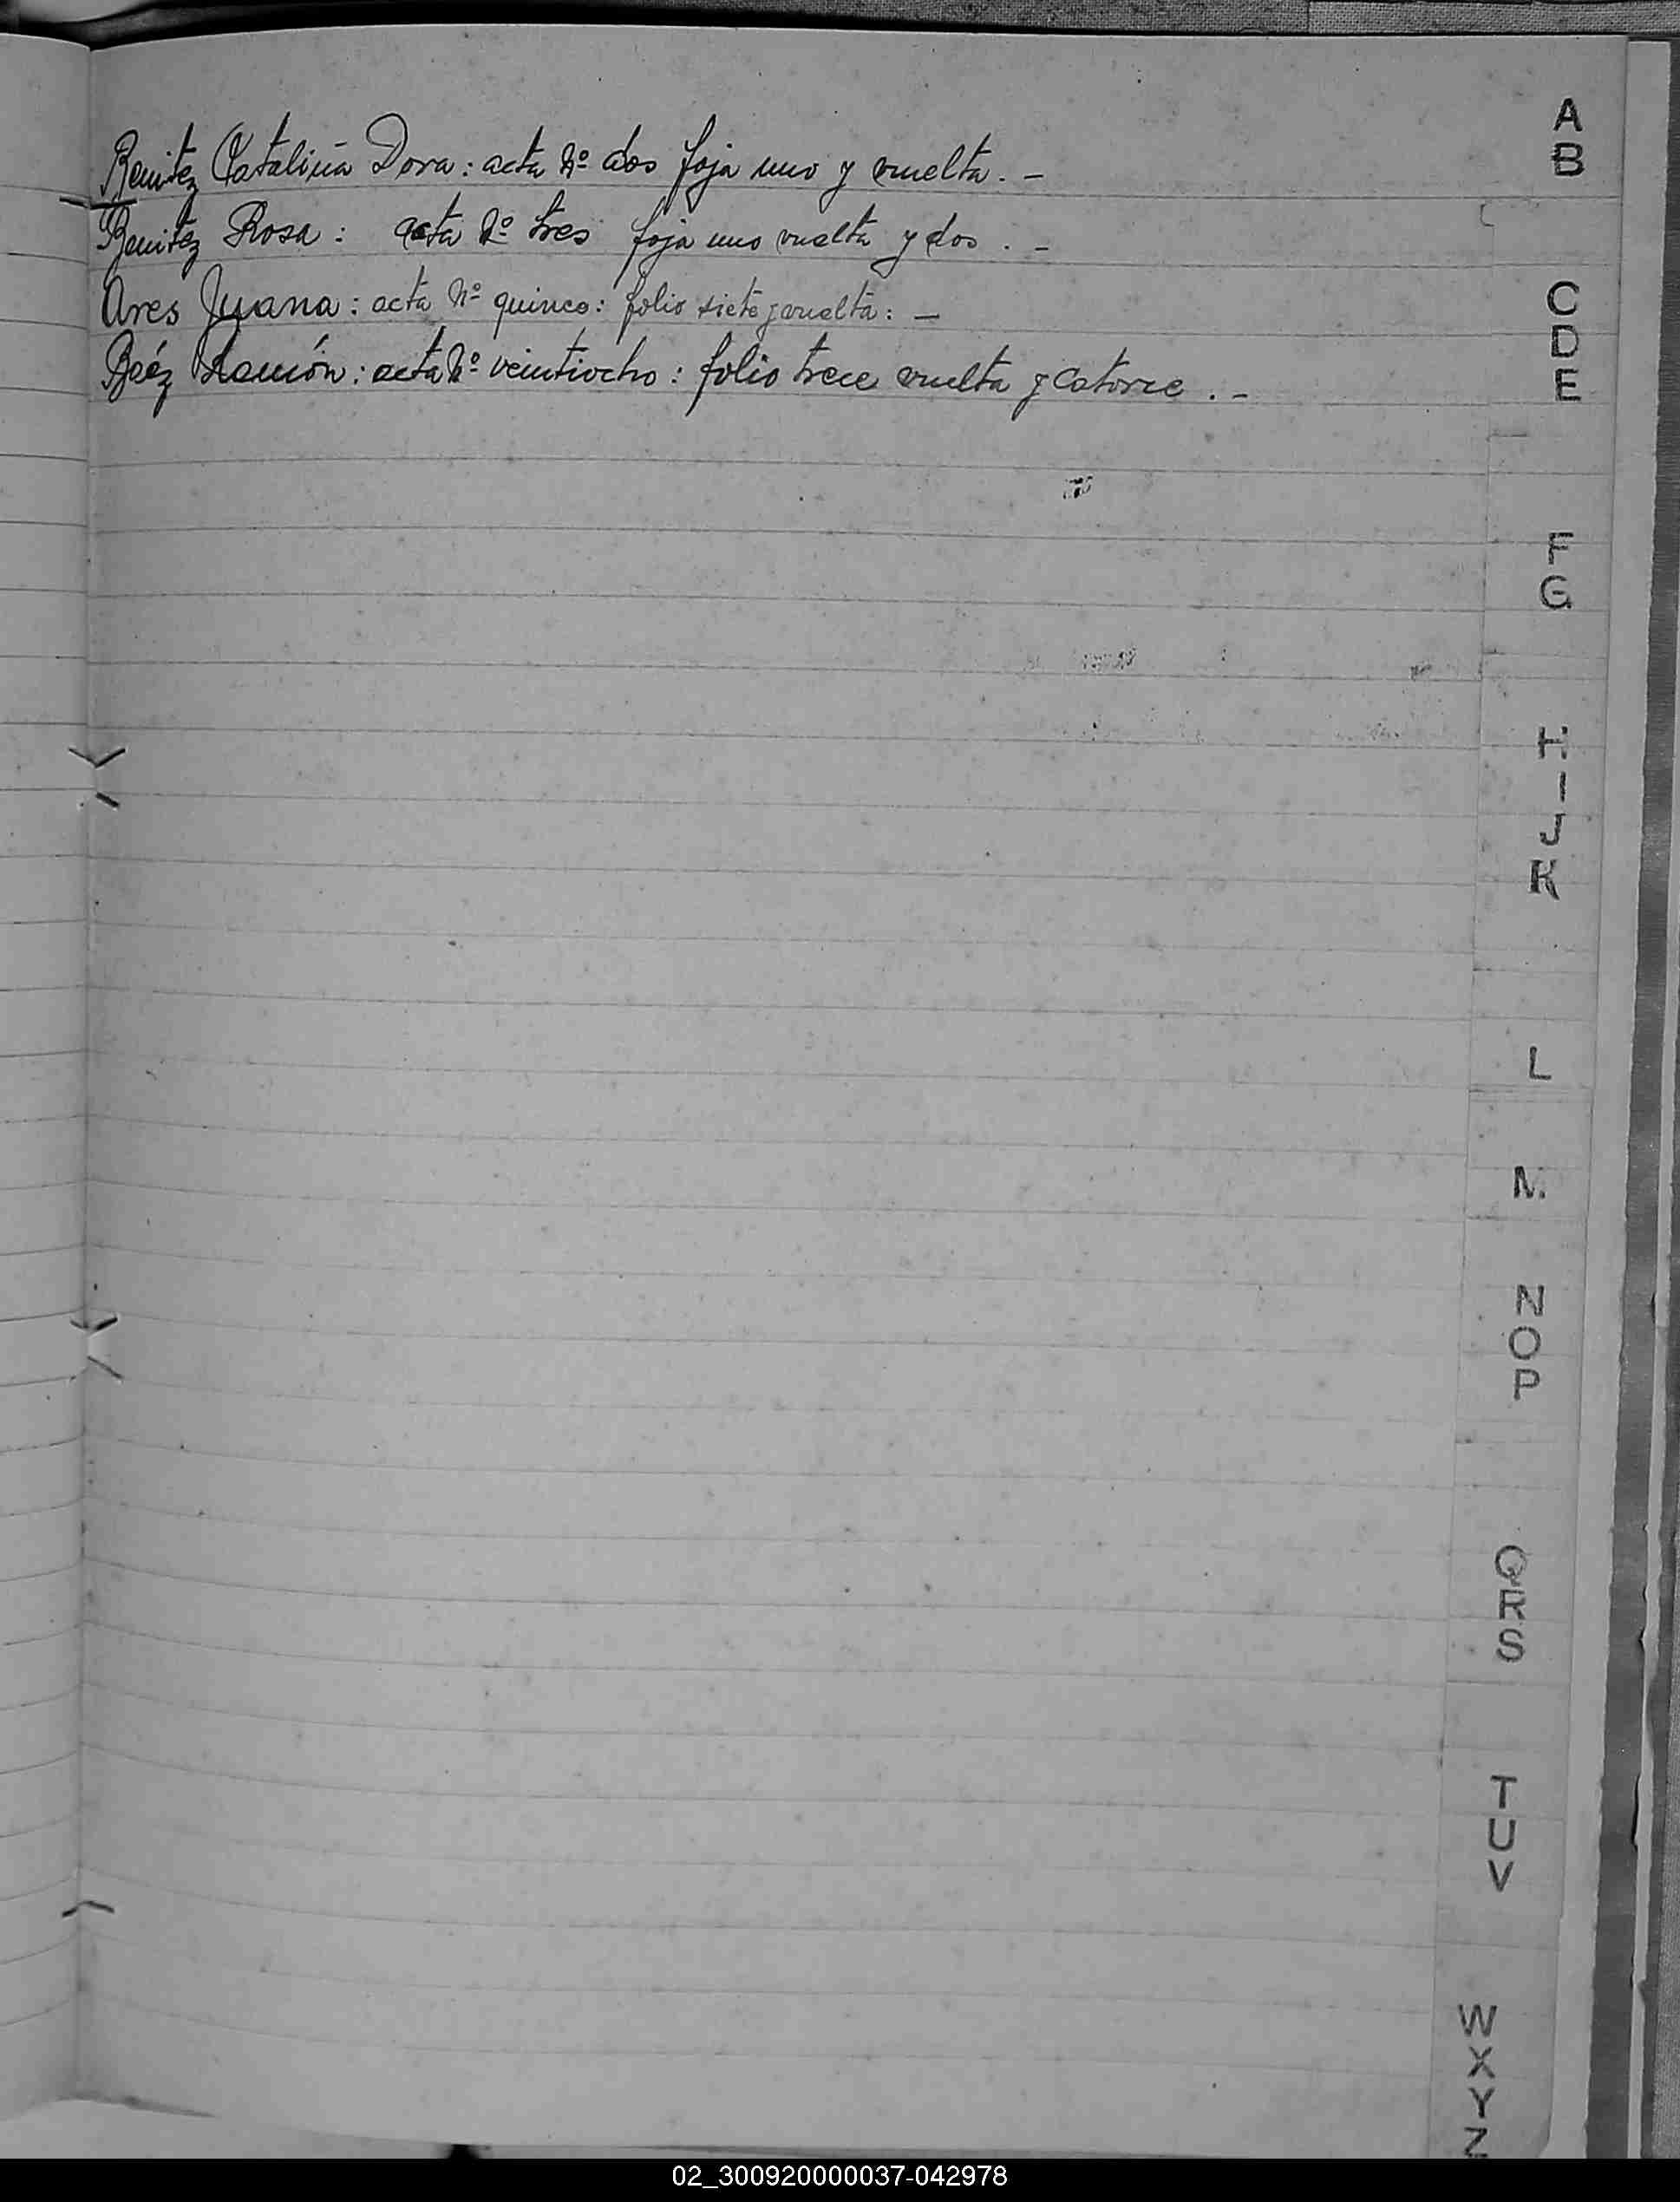 Benitez Catalina Dora: acta Nº dos foja uno y vuelta. -
Benitez Rosa: acta Nº tres foja uno vuelta y dos. -
Ares Juana: acta Nº quince: folio siete y vuelta: -
Baéz Ramón: acta Nº veintiocho: folio trece vuelta y catorce. -
A
B
C
D
E
F
G
H
I
J
K
L
M
N
O
P
Q
R
S
T
U
V
W
X
Y
Z
02_300920000037-042978